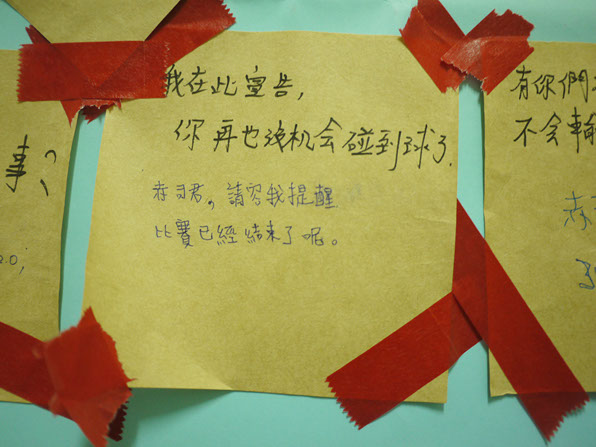 事?
我在此宣告,
你再也沒机会碰到球了.
赤司君,請容我提醒
比賽已經結束了呢。
有你們
不会輸
赤